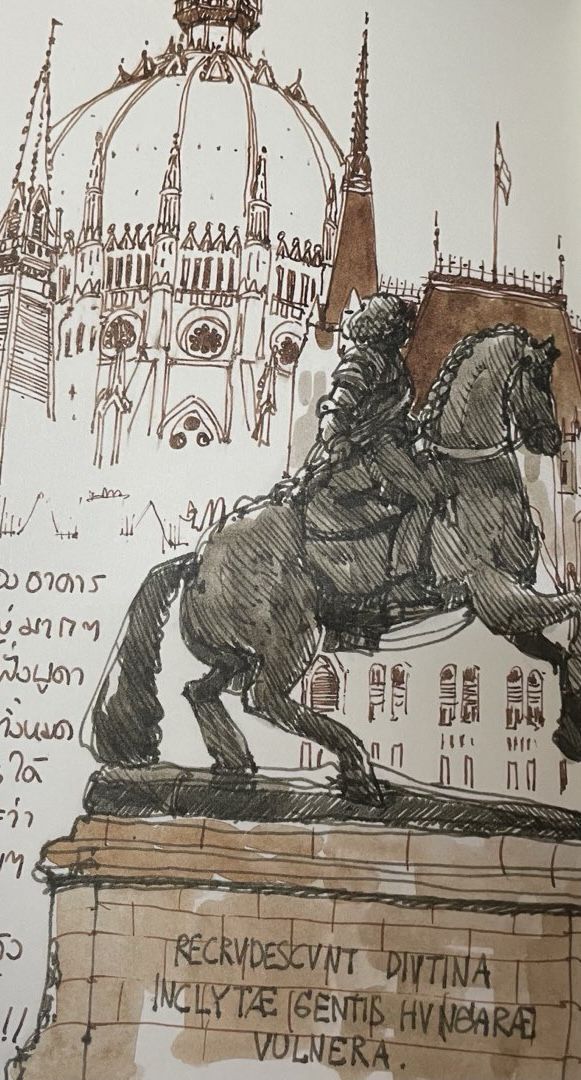 อาคาร
มากๆ
ฝั่งบูดา
ทั้งหมด
ได้
ว่า
!!
RECRVDESCVNT DIVTINA
INCLYTÆ GENTIS HVNGARÆ
VULNERA.